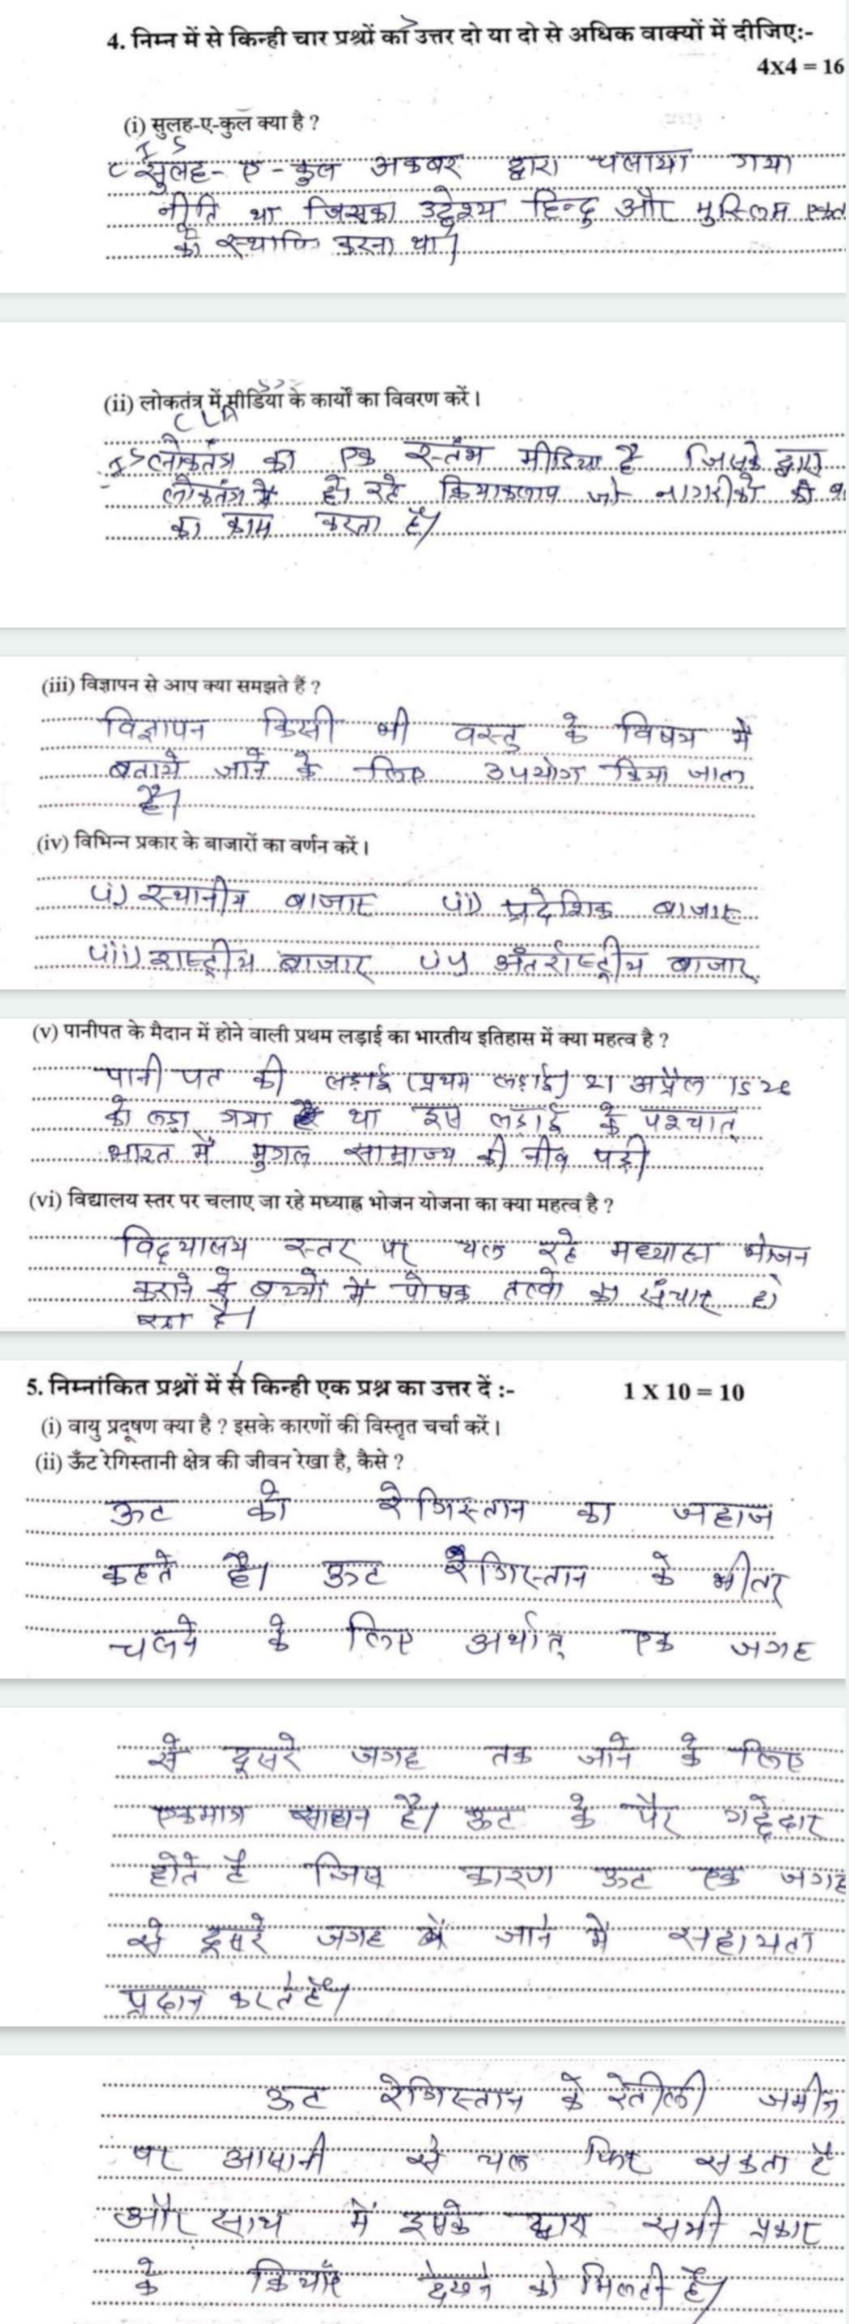 4. निम्न में से किन्ही चार प्रश्नों का उत्तर दो या दो से अधिक वाक्यों में दीजिए:-
4x4 = 16
(i) सुलह-ए-कुल क्या है ?
सुलह- ए - कुल अकबर द्वारा चलाया गया
नीति था जिसका उद्देश्य हिन्दु और मुस्लिम
को स्थापि करना था।
(ii) लोकतंत्र में मीडिया के कार्यों का विवरण करें।
लोकतंत्र का एक स्तंभ मीडिया है जिसके द्वारा
लोकतंत्र में हो रहे क्रियाकलाप जो नागरीको की
का काम करता है।
(iii) विज्ञापन से आप क्या समझते हैं ?
विज्ञापन किसी भी वस्तु के विषय में
बताये जाने के लिए उपयोग किया जाता
है।
(iv) विभिन्न प्रकार के बाजारों का वर्णन करें।
(i) स्थानीय बाजार (ii) प्रदेशिक बाजार
(iii) राष्ट्रीय बाजार (iv) अंतर्राष्ट्रीय बाजार
(v) पानीपत के मैदान में होने वाली प्रथम लड़ाई का भारतीय इतिहास में क्या महत्व है ?
पानी पत की लड़ाई (प्रथम लड़ाई) 21 अप्रैल 1526
को लड़ा गया था इस लड़ाई के पश्चात्
भारत में मुगल साम्राज्य की नीव पड़ी
(vi) विद्यालय स्तर पर चलाए जा रहे मध्याह्न भोजन योजना का क्या महत्व है ?
विद्यालय स्तर पर चल रहे मध्याह्न भोजन
कराने से बच्चों में पोषक तत्वो का संचार हो
रहा है।
5. निम्नांकित प्रश्नों में से किन्ही एक प्रश्न का उत्तर दें :- 1 X 10 = 10
(i) वायु प्रदूषण क्या है ? इसके कारणों की विस्तृत चर्चा करें।
(ii) ऊँट रेगिस्तानी क्षेत्र की जीवन रेखा है, कैसे ?
ऊट को रेगिस्तान का जहाज
कहते है। ऊट रेगिस्तान के भीतर
चलने के लिए अर्थात् एक जगह
से दूसरे जगह तक जाने के लिए
एकमात्र साधन है। ऊट के पैर गद्देदार
होते है जिस कारण ऊट एक जगह
से दूसरे जगह में जाने में सहायता
प्रदान करते है।
ऊट रेगिस्तान के रेतीली जमीन
पर आसानी से चल फिर सकता है
और साथ में इसके द्वारा सभी प्रकार
के क्रियाएँ देखने को मिलती है।